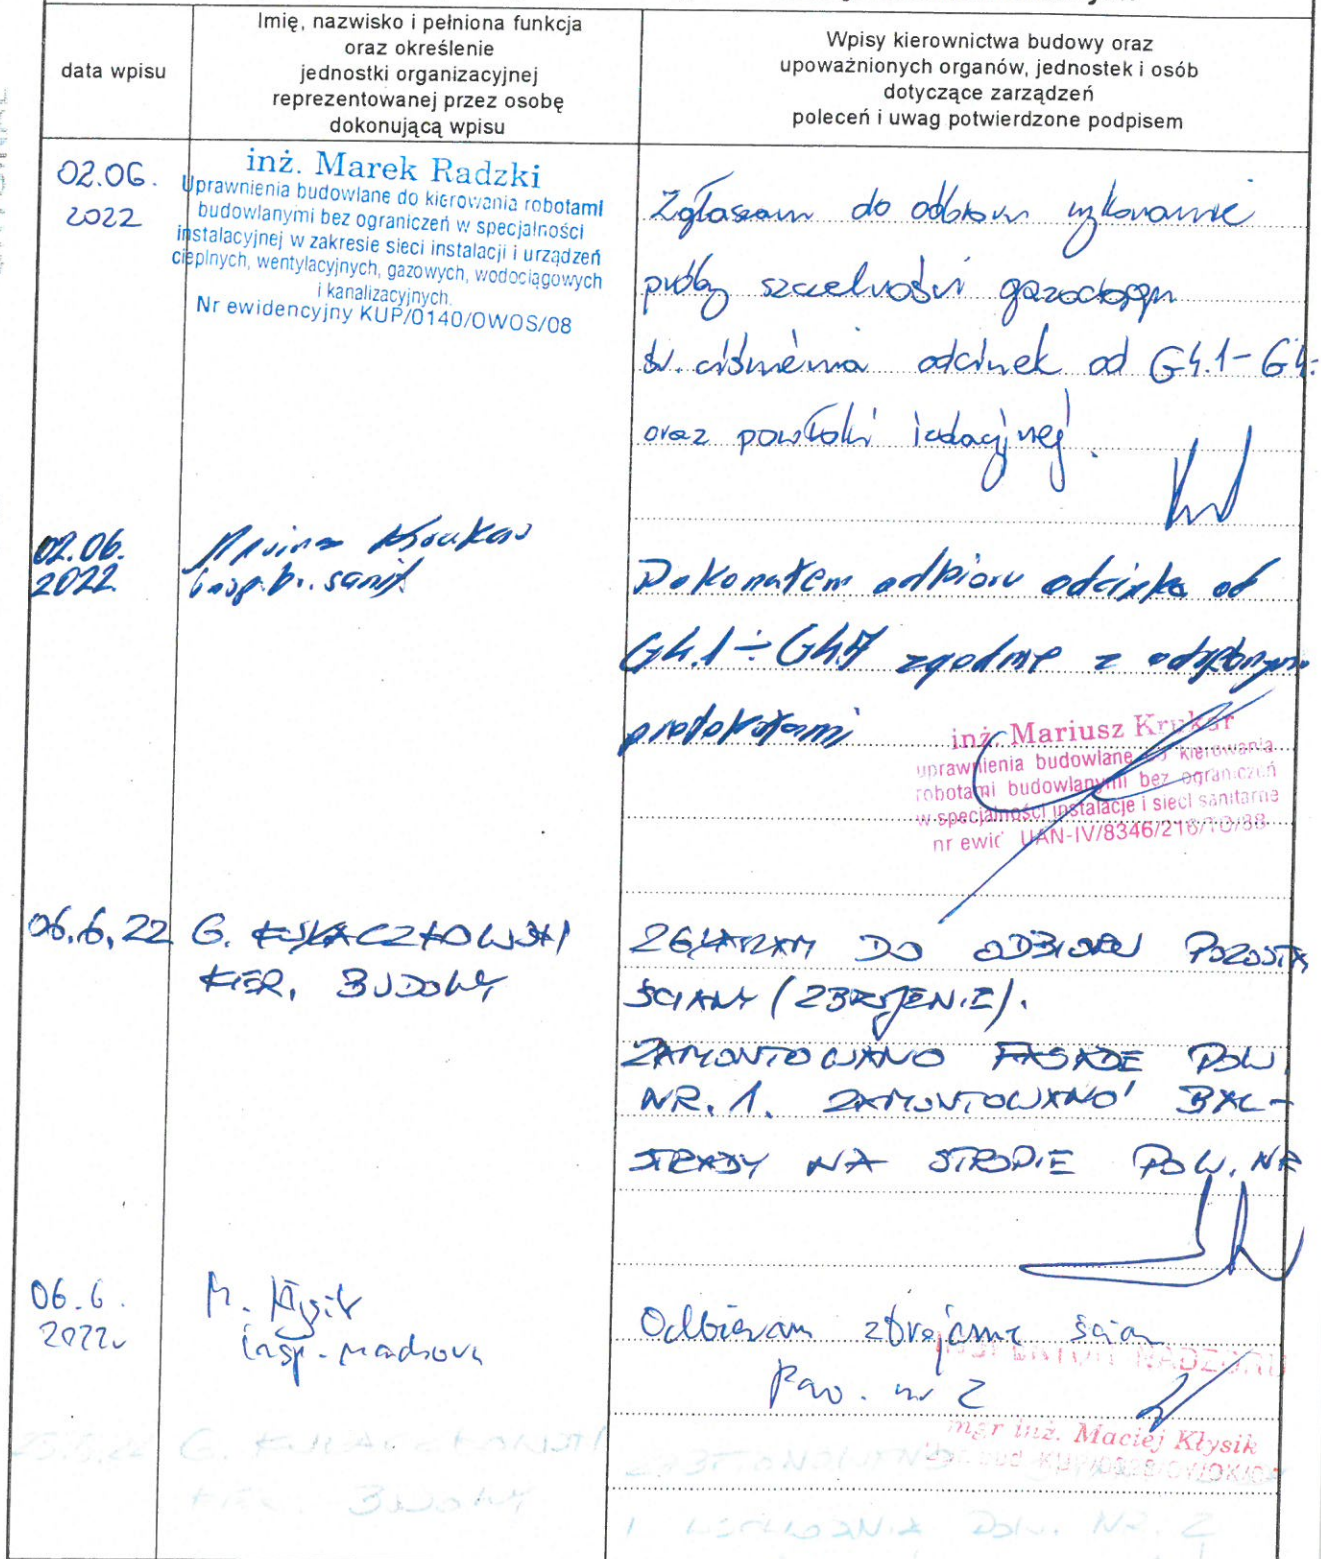 data wpisu
Imię, nazwisko i pełniona funkcja
oraz określenie
jednostki organizacyjnej
reprezentowanej przez osobę
dokonującą wpisu
Wpisy kierownictwa budowy oraz
upoważnionych organów, jednostek i osób
dotyczące zarządzeń
poleceń i uwag potwierdzone podpisem
02.06.
2022
inż. Marek Radzki
Uprawnienia budowlane do kierowania robotami
budowlanymi bez ograniczeń w specjalności
instalacyjnej w zakresie sieci instalacji i urządzeń
cieplnych, wentylacyjnych, gazowych, wodociągowych
i kanalizacyjnych.
Nr ewidencyjny KUP/0140/OWOS/08
Zgłaszam do odbioru wykonanie
próby szczelności gazociągu
śr. ciśnienia odcinek od G4.1-G4.
oraz powłoki izolacyjnej.
02.06.
2022
insp. br. sanit.
Dokonałem odbioru odcinka od
G4.1÷G4.7 zgodnie z
protokołami
inż. Mariusz Krukar
uprawnienia budowlane do kierowania
robotami budowlanymi bez ograniczeń
w specjalności instalacje i sieci sanitarne
nr ewid UAN-IV/8346/216/TO/88
06.6.22
G.
KIER. BUDOWY
ZGŁASZAM DO ODBIORU POZOSTA
ŚCIANY (ZBROJENIE).
ZAMONTOWANO FASADE PAW.
NR. 1. ZAMONTOWANO BAL-
STRADY NA STROPIE PAW. NR
06.6.
2022r
M. Kłysik
insp. nadzoru
Odbieram zbrojenie ścian
Paw. nr 2
INSPEKTOR NADZORU
mgr inż. Maciej Kłysik
G.
KIER. BUDOWY
NR. 2